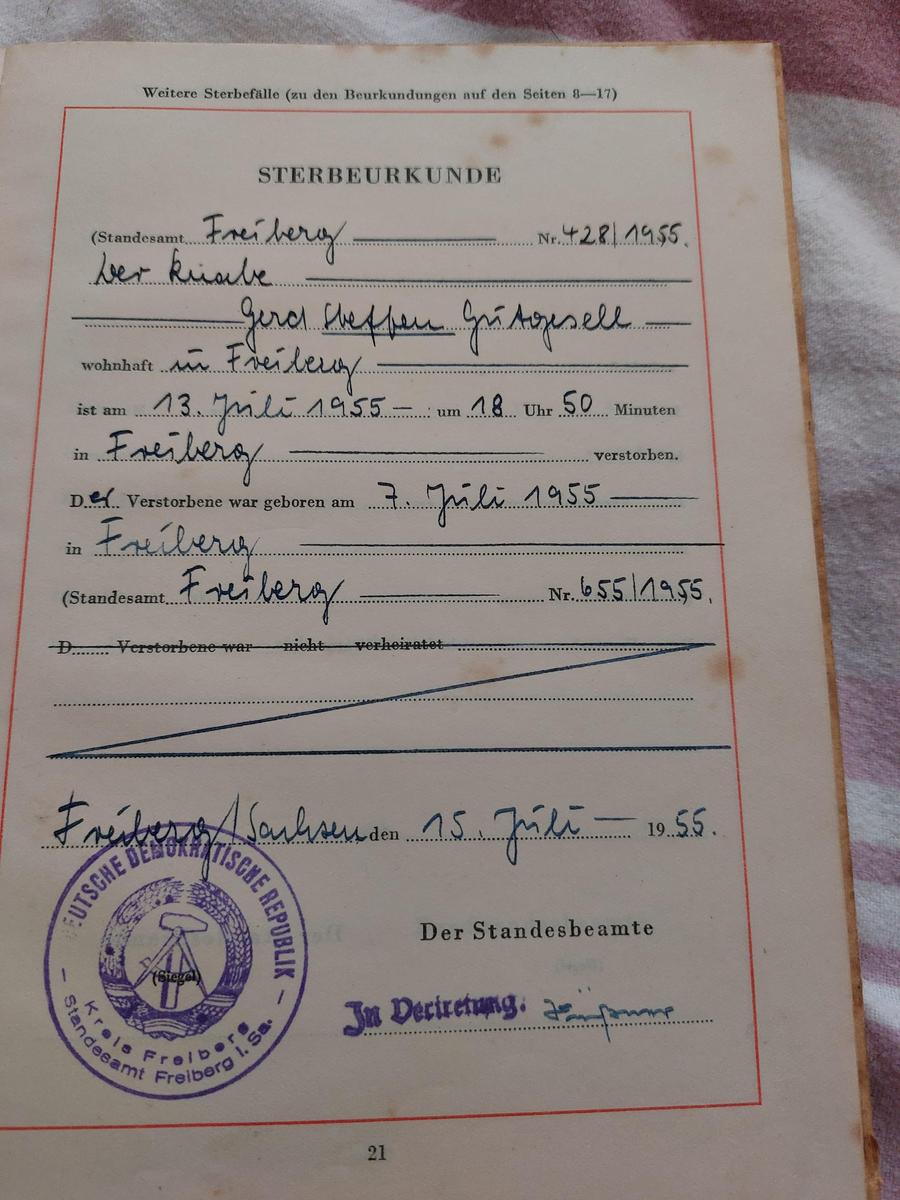 Weitere Sterbefälle (zu den Beurkundungen auf den Seiten 8—17)
STERBEURKUNDE
(Standesamt Freiberg Nr. 428/1955.
Der Knabe
Gerd Steffen Gutgesell
wohnhaft in Freiberg
ist am 13. Juli 1955 — um 18 Uhr 50 Minuten
in Freiberg verstorben.
Der Verstorbene war geboren am 7. Juli 1955
in Freiberg
(Standesamt Freiberg Nr. 655/1955.
D Verstorbene war nicht verheiratet
Freiberg/Sachsen den 15. Juli — 1955.
DEUTSCHE DEMOKRATISCHE REPUBLIK
(Siegel)
Kreis Freiberg
Standesamt Freiberg i. Sa.
Der Standesbeamte
In Vertretung.
21